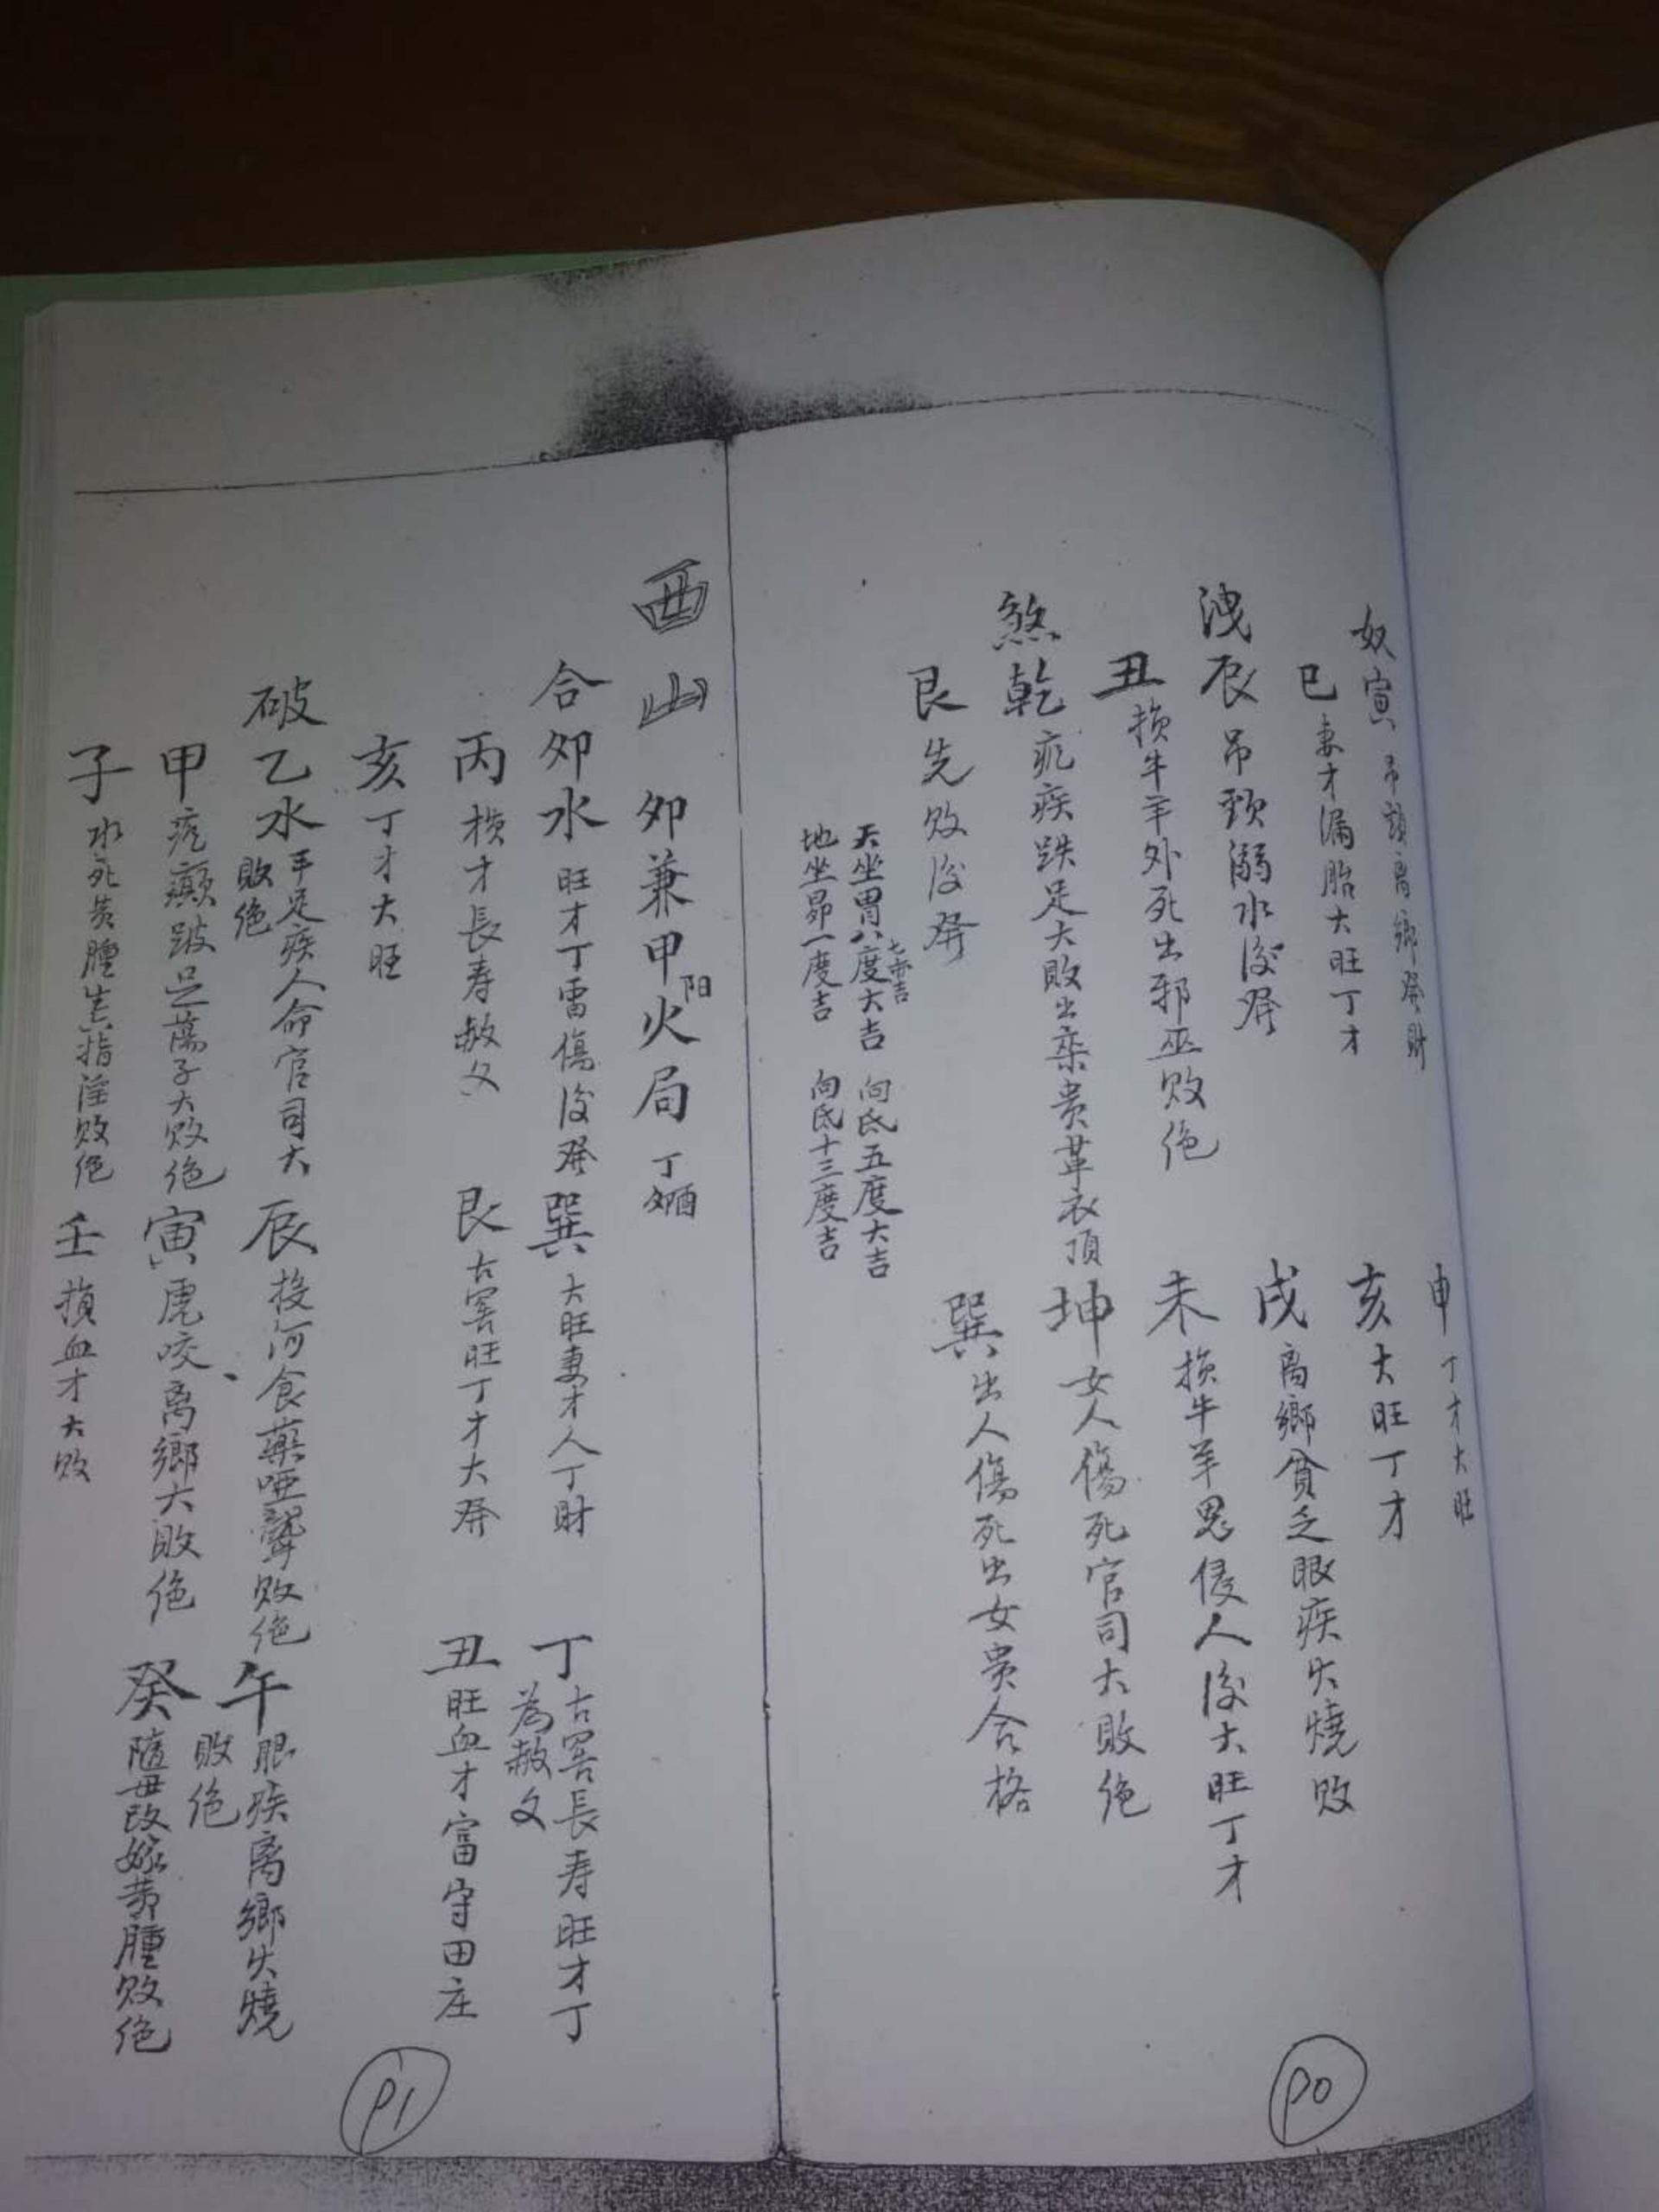 奴寅 吊頸离鄉發財
申 丁才大旺
巳 妻才漏胎大旺丁才
亥 大旺丁才
洩辰 吊頸溺水后発
戌 离鄉貧乏眼疾失燒敗
丑 損牛羊外死出邪巫敗绝
未 損牛羊鬼侵人后大旺丁才
煞乾 疾跌足大敗出貴革衣頂
坤 女人傷死官司大敗绝
艮 先敗后発
巽 出人傷死出女貴合格
天坐胃八度大吉 七亦吉 向氐五度大吉
地坐昴一度吉 向氐十三度吉
P0
酉山 卯兼甲火局 阳 丁卯酉
合卯水 旺才丁雷傷后発
巽 大旺妻才人丁財
丁 古窖長寿旺才丁
為赦文
丙 損才長寿赦文
艮 古窖旺丁才大発
丑 旺血才富守田庄
亥 丁才大旺
破乙水 手足疾人命官司大
敗绝
辰 投河食藥啞聾敗绝
午 眼疾离鄉失燒
敗绝
甲 癲跛足蕩子大敗绝
寅 虎咬离鄉大敗绝
癸 隨母改嫁黄腫敗绝
子 水死黄腫生指淫敗绝
壬 損血才大敗
P1